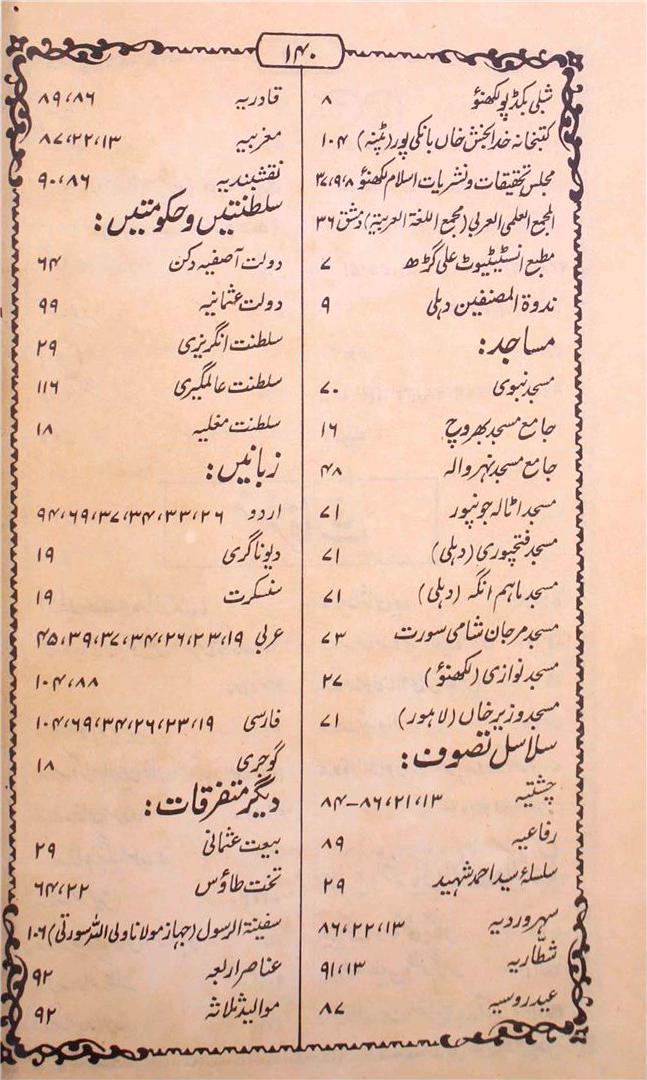 ۱۴۰
شبلی بکڈپو لکھنؤ ۸
کتبخانہ خدا بخش خاں بانکی پور (پٹنہ) ۱۰۴
مجلس تحقیقات و نشریات اسلام لکھنؤ ۸، ۹، ۳۷
المجمع العلمی العربی (مجمع اللغة العربیة) دمشق ۳۶
مطبع انسٹیٹیوٹ علی گڑھ ۷
ندوة المصنفین دہلی ۹
مساجد:
مسجد نبوی ۷۰
جامع مسجد بھروچ ۱۶
جامع مسجد نہروالہ ۴۸
مسجد اٹالہ جونپور ۷۱
مسجد فتحپوری (دہلی) ۷۱
مسجد ماہم انگہ (دہلی) ۷۱
مسجد مرجان شامی سورت ۷۳
مسجد نوازی (لکھنؤ) ۲۷
مسجد وزیر خاں (لاہور) ۷۱
سلاسل تصوف:
چشتیہ ۱۳، ۲۱، ۸۶–۸۴
رفاعیہ ۸۹
سلسلۂ سید احمد شہید ۲۹
سہروردیہ ۱۳، ۲۲، ۸۶
شطّاریہ ۱۳، ۹۱
عیدروسیہ ۸۷
قادریہ ۸۶، ۸۹
مغربیہ ۱۳، ۲۲، ۸۷
نقشبندیہ ۸۶، ۹۰
سلطنتیں و حکومتیں:
دولت آصفیہ دکن ۶۴
دولت عثمانیہ ۹۹
سلطنت انگریزی ۲۹
سلطنت عالمگیری ۱۱۶
سلطنت مغلیہ ۱۸
زبانیں:
اردو ۲۶، ۳۳، ۳۴، ۳۷، ۶۹، ۹۴
دیوناگری ۱۹
سنسکرت ۱۹
عربی ۱۹، ۲۳، ۲۶، ۳۴، ۳۷، ۳۹، ۴۵
۸۸، ۱۰۴
فارسی ۱۹، ۲۳، ۲۶، ۳۴، ۶۹، ۱۰۴
گوجری ۱۸
دیگر متفرقات:
بیعت عثمانی ۲۹
تخت طاؤس ۲۲، ۶۴
سفینة الرسول (جہاز مولانا ولی اللہ سورتی) ۱۰۶
عناصر اربعہ ۹۲
موالید ثلاثہ ۹۲